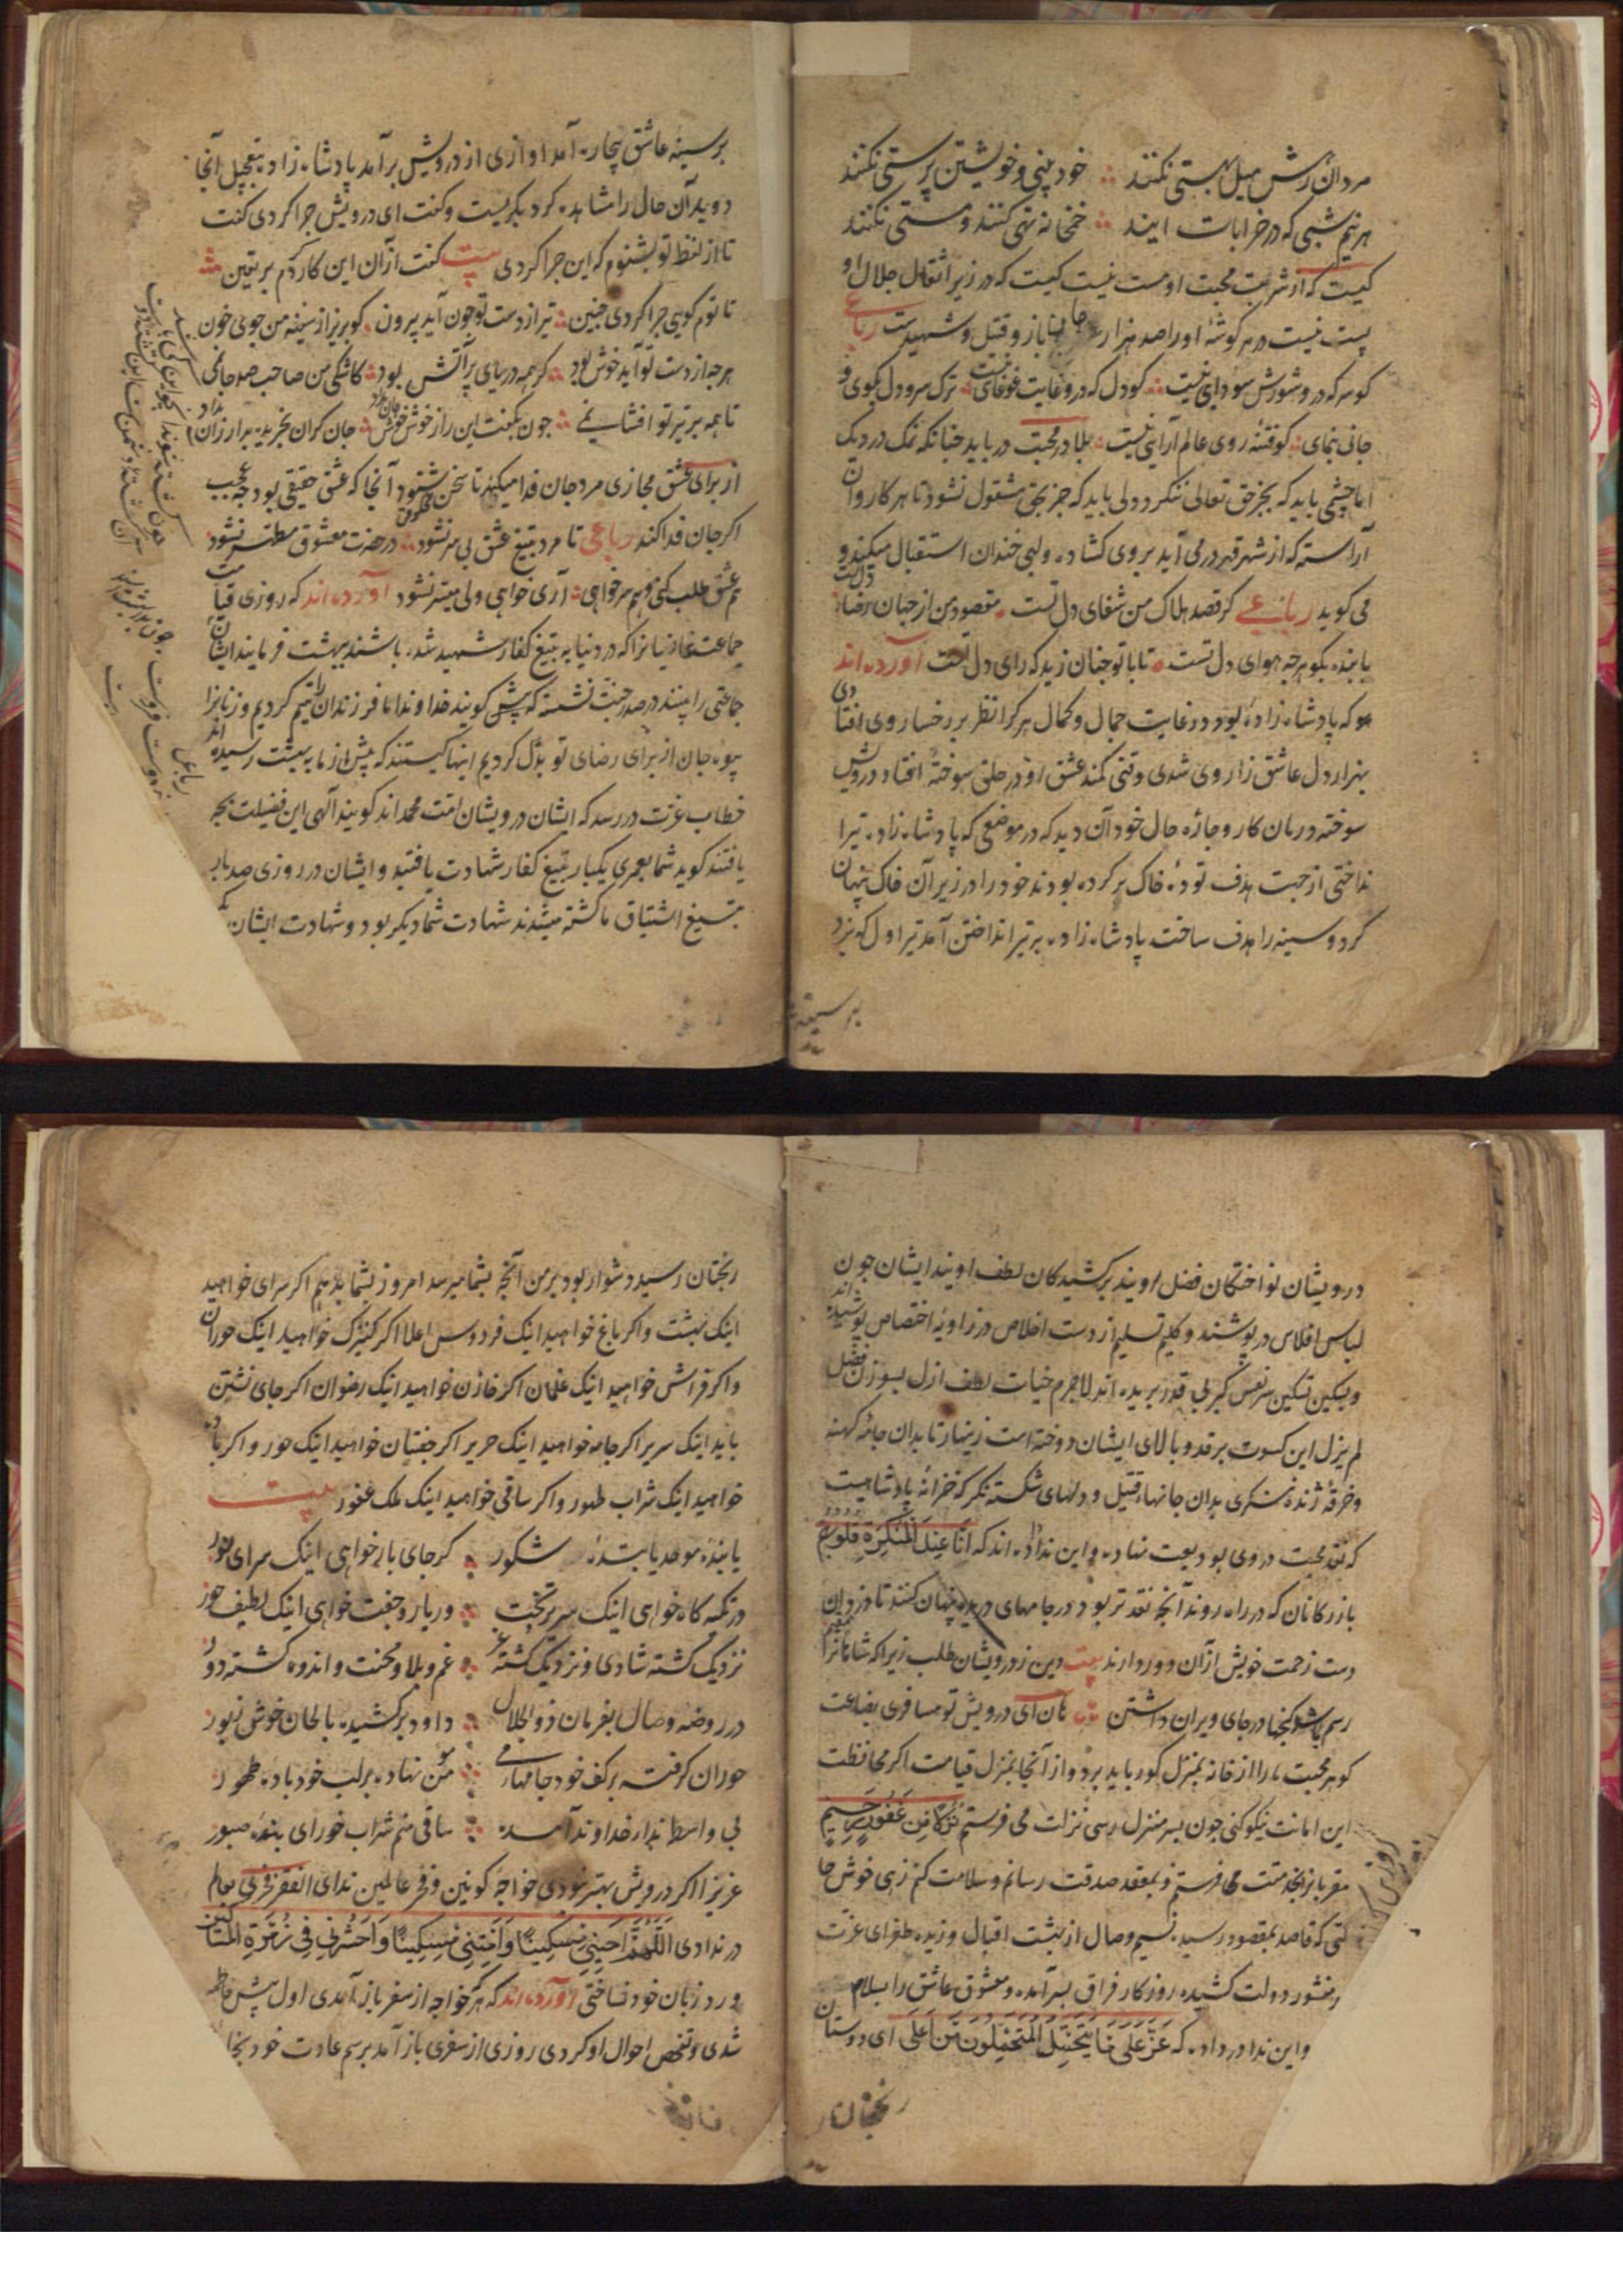 مردان رهش میل بهستی نکنند ∴ خود بینی و خویشتن پرستی نکنند
هر نیم شبی که در خرابات آیند ∴ خمخانه تهی کنند و مستی نکنند
کیست که از شربت محبت او مست نیست کیست که در زیر اثقال جلال او
پست نیست در هر گوشهٔ او را صد هزار جانباز و قتیل و شهیدست رباعی
کو سر که درو شورش سودای نیست ∴ کو دل که درو غایت غوغای نیست ∴ ترک سر و دل بگوی و
جانی بنمای ∴ کو فتنهٔ روی عالم آرایی نیست ∴ بلا در محبت در باید چنانکه نمک در دیک
اما چشمی باید که بجز حق تعالی ننکرد و دلی باید که جز بحق مشغول نشود تا هر کاروان
آراسته که از شهر قهر در می آید بروی کشاده و لبی خندان استقبال میکند و
می کوید رباعی کر قصد هلاک من شفای دل تست ∴ مقصود من از جهان رضای دل تست
با بنده بکو هرچه هوای دل تست ∴ تا با تو چنان زید که رای دل تست آورده اند
که پادشاه زادهٔ بود در غایت جمال و کمال هر کرا نظر بر رخسار وی افتادی
بهزار دل عاشق زار وی شدی وقتی کمند عشق او در حلق سوختهٔ افتاد درویش
سوخته درمان کار و چارهٔ حال خود آن دید که در موضعی که پادشاه زاده تیر ا
نداختی از جهت هدف تودهٔ خاک بر کرده بودند خود را در زیر آن خاک پنهان
کرد و سینه را هدف ساخت پادشاه زاده بر تیر انداختن آمد تیر اول که بزد
بر سینه
بر سینهٔ عاشق بیچاره آمد اوازی از درویش بر آمد پادشاه زاده بتعجیل آنجا
دوید آن حال را مشاهده کرد بکریست و کفت ای درویش چرا کردی کفت
تا از لفظ تو بشنوم که این چرا کردی بیت کفت از آن این کار کردم بر یقین ∴
تا توم کویی چرا کردی چنین ∴ تیر از دست تو چون آید بیرون ∴ کو بریز از سینهٔ من جوی خون
هرچه از دست تو آید خوش بود ∴ کر همه دریای پر آتش بود ∴ کاشکی من صاحب صد جانمی
تا همه بر تیر تو افشانمی ∴ چون بکفت این راز خوش خوش جان بداد ∴ جان کران بخریده بد ارزان بداد
از برای عشق مجازی مرد جان فدا میکند تا سخن معشوق شنود آنجا که عشق حقیقی بود چه عجب
اکر جان فدا کند رباعی تا مرد بتیغ عشق بی سر نشود ∴ در حضرت معشوق مطهر نشود
هم عشق طلب کنی و هم سر خواهی ∴ آری خواهی ولی میسر نشود آورده اند که روزی قیامت
جماعت غازیانرا که در دنیا به تیغ کفار شهید شده باشند ببهشت فرمایند ایشان
جماعتی را بینند در صدر جنت نشسته که پیش کویند خداوندا ما فرزندان را یتیم کردیم و زنانرا
بیوه جان از برای رضای تو بذل کردیم اینها کیستند که پیش از ما به بهشت رسیده اند
خطاب عزت در رسد که ایشان درویشان امت محمد اند کویند آلهی این فضیلت بچه
یافتند کوید شما بعمری یکبار بتیغ کفار شهادت یافتید و ایشان در روزی صد بار
بتیغ اشتیاق ما کشته میشدند شهادت شما دیکر بود و شهادت ایشان دیکر
درویشان نواختکان فضل اویند برکشیدکان لطف اویند ایشان چون
لباس افلاس در پوشند و کلیم تسلیم از دست اخلاص در زاویهٔ اختصاص پوشیده اند
و بسکین تسکین سر نفس کبر بی قدر بریده اند لاجرم خیاط لطف ازل بسوزن فضل
لم یزل این کسوت بر قد و بالای ایشان دوخته است زینهار تا بدان جامهٔ کهنه
و خرقهٔ ژنده ننکری بدان جانهاء قتیل و دلهای شکسته نکر که خزانهٔ پادشاهیست
که نقد محبت در وی بودیعت نهاده و این ندا داده اند که انا عند المنکسرة قلوبهم
بازرکانان که در راه روند آنچه نقدتر بود در جامهای دریده پنهان کنند تا دزدان
دست زحمت خویش از آن دور دارند بیت دین ز درویشان طلب زیرا که شاهانرا مقیم
رسم باشد کنجها در جای ویران داشتن ∴ هان ای درویش تو مسافری بضاعت
کوهر محبت ما را از خانه بمنزل کور باید برد و از آنجا بمنزل قیامت اکر محافظت
این امانت نیکو کنی چون بسر منزل رسی نزلت می فرستم نزلا من غفور رحیم
مقر باز بخدمتت می فرستم و بمقعد صدقت رسانم و سلامت کنم زهی خوش حا
لتی که قاصد بمقصود رسیده نسیم وصال از بهشت اقبال وزیده طغرای عزت
بر منشور دولت کشیده روزکار فراق بسر آمده و معشوق عاشق را بسلام
و این ندا در داده که عز علی ما یتحمل المتحملون من اعلی ای دوستان
رنجتان
رنجتان رسید و دشوار بود بر من آنچه بشما میرسد امروز بشما بدهم اکر سرای خواهید
اینک بهشت و اکر باغ خواهید اینک فردوس اعلا اکر کنیزک خواهید اینک حوران
و اکر فراش خواهید اینک غلمان اکر خازن خواهید اینک رضوان اکر جای نشتن
باید اینک سریر اکر جامه خواهید اینک حریر اکر جفتیان خواهید اینک حور و اکر باده
خواهید اینک شراب طهور و اکر ساقی خواهید اینک ملک غفور بیت
یا بندهٔ موحد یا بندهٔ شکور ∴ کر جای باز خواهی اینک سرای نور
ور تکیه کاه خواهی اینک سریر تخت ∴ ور یار و جفت خواهی اینک لطیف حور
نزدیک کشته شادی و نزدیک کشته عز ∴ غم و بلا و محنت و اندوه کشته دور
در روضهٔ وصال بفرمان ذو الجلال ∴ داود بر کشیده بالحان خوش زبور
حوران کرفته بر کف خود جامهای می ∴ مؤمن نهاده بر لب خود بادهٔ طهور
بی واسطه ندا ز خداوند آمده ∴ ساقی منم شراب خور ای بندهٔ صبور
عزیزا اکر درویش بهتر نبودی خواجهٔ کونین و فخر عالمین ندای الفقر فخری بعالم
در ندادی اللهم احینی مسکینا و امتنی مسکینا و احشرنی فی زمرة المساکین
ورد زبان خود نساختی آورده اند که هر که خواجه از سفر باز آمدی اول پیش فاطمه
شدی و تفحص احوال او کردی روزی از سفری باز آمد بر سم عادت خود بخا